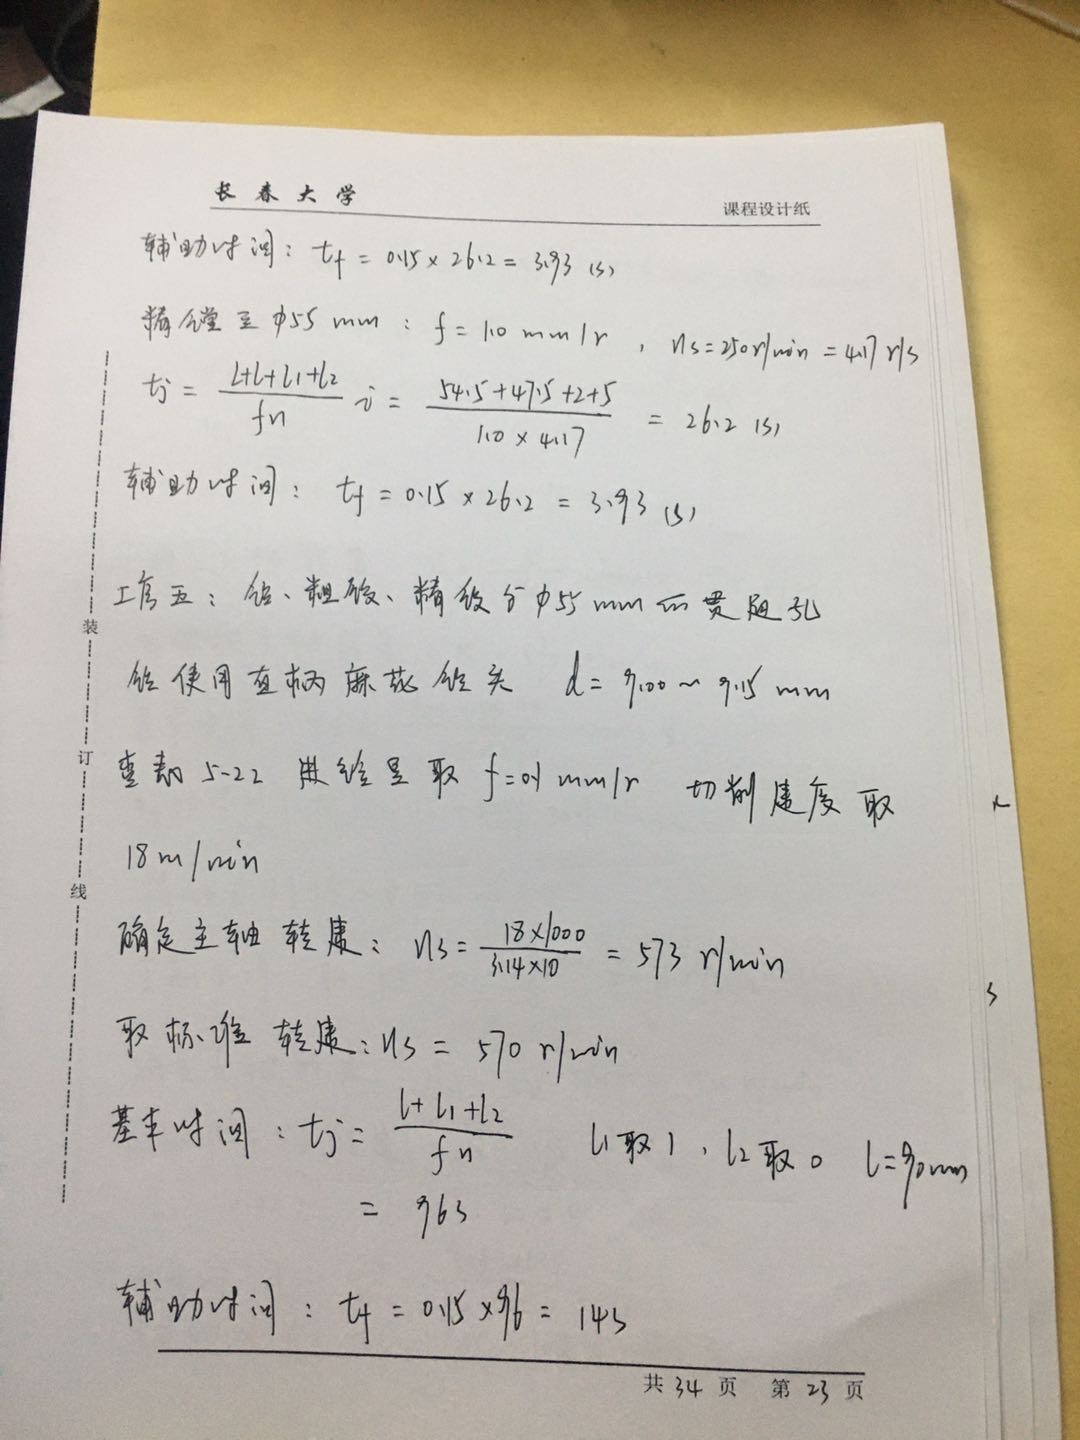 长春大学
课程设计纸
辅助时间: tf = 0.15 × 26.2 = 3.93 (s)
精镗至 φ55 mm : f = 1.0 mm/r , ns = 250 r/min = 4.17 r/s
tj = (l+l+l1+l2)/(fn) i = (54.5+47.5+2+5)/(1.0 × 4.17) = 26.2 (s)
辅助时间: tf = 0.15 × 26.2 = 3.93 (s)
工序五: 钻、粗铰、精铰 φ55 mm 的贯通孔
钻使用直柄麻花钻头 d = 9.00 ~ 9.15 mm
查表 5-22 进给量取 f = 0.1 mm/r 切削速度取
18 m/min
确定主轴转速: ns = (18×1000)/(3.14×10) = 573 r/min
取标准转速: ns = 570 r/min
基本时间: tj = (l+l1+l2)/(fn) l1取1 , l2取0 l=90mm
= 96s
辅助时间: tf = 0.15 × 96 = 14s
装
订
线
共 34 页 第 23 页